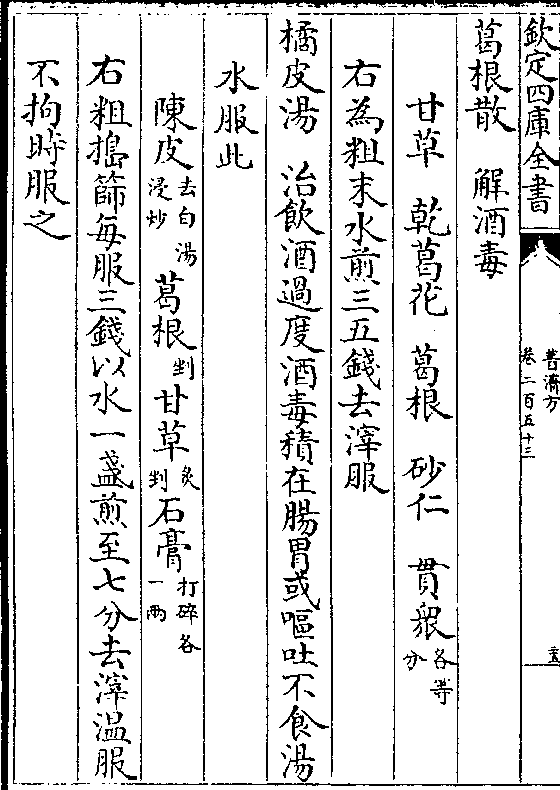 欽定四庫全書
普濟方
卷二百五十三
葛根散　解酒毒
甘草　乾葛花　葛根　砂仁　貫衆各等分
右為粗末水煎三五錢去滓服
橘皮湯　治飲酒過度酒毒積在腸胃或嘔吐不食湯
水服此
陳皮去白湯浸炒　葛根剉　甘草炙剉　石膏打碎各一兩
右粗搗篩每服三錢以水一盞煎至七分去滓温服
不拘時服之